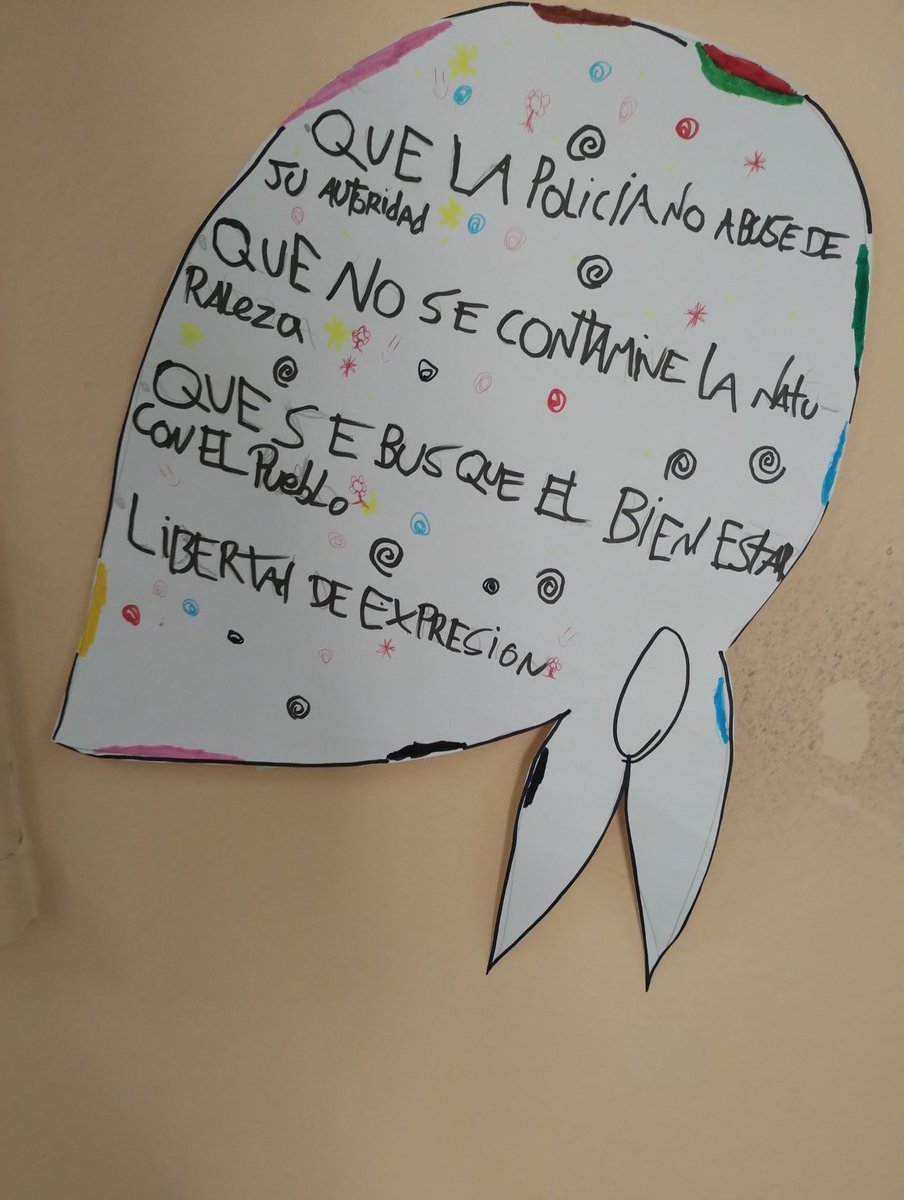 QUE LA POLICÍA NO ABUSE DE
SU AUTORIDAD
QUE NO SE CONTTAMINE LA NATU
RALEZA
QUE SE BUSQUE EL BIEN ESTAR
CON EL PUEBLO
LIBERTAD DE EXPRESION